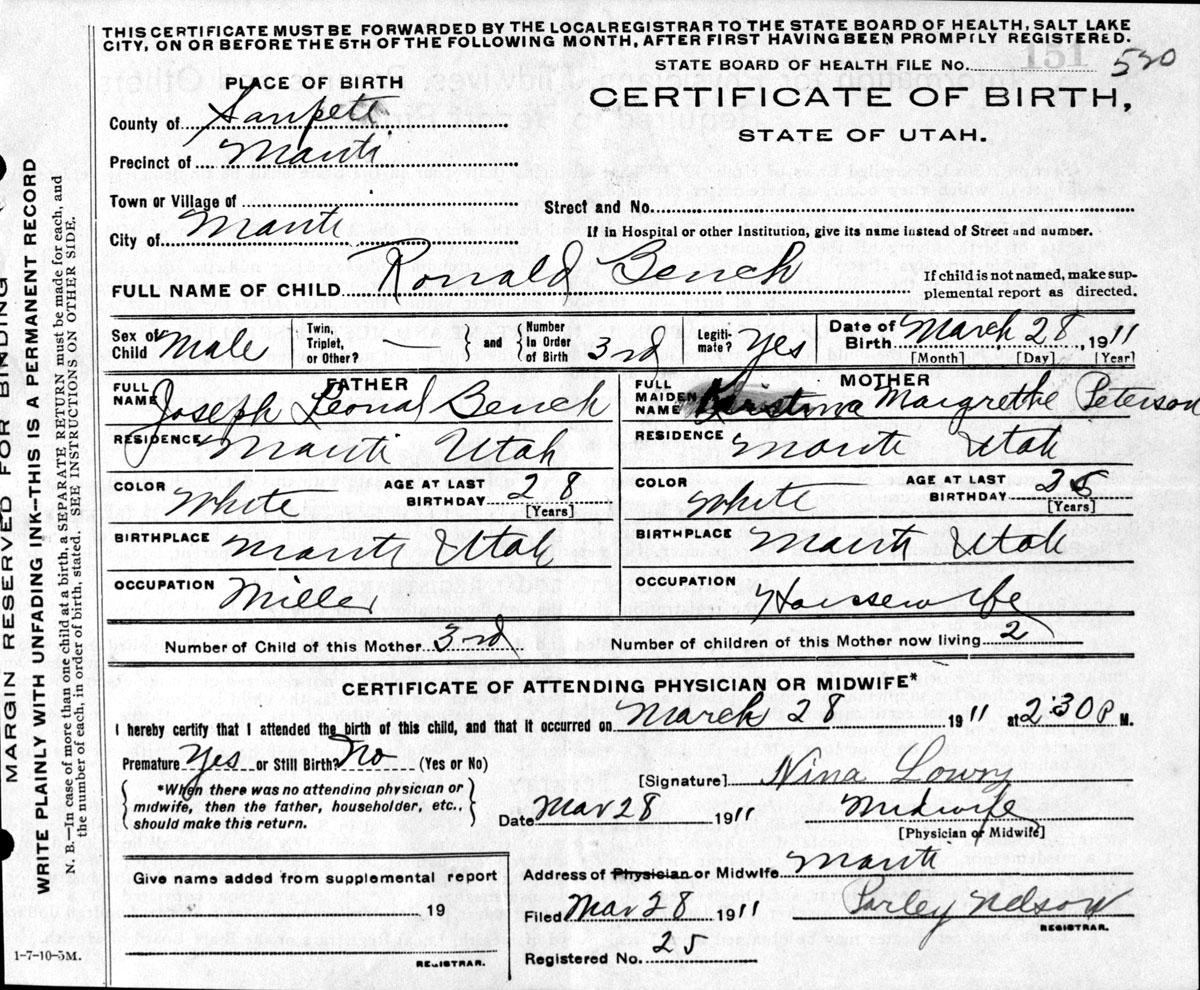 THIS CERTIFICATE MUST BE FORWARDED BY THE LOCAL REGISTRAR TO THE STATE BOARD OF HEALTH, SALT LAKE
CITY, ON OR BEFORE THE 5TH OF THE FOLLOWING MONTH, AFTER FIRST HAVING BEEN PROMPTLY REGISTERED.
STATE BOARD OF HEALTH FILE NO. 151 520
PLACE OF BIRTH
CERTIFICATE OF BIRTH,
STATE OF UTAH.
County of Sanpete
Precinct of Manti
Town or Village of
Street and No.
City of Manti
If in Hospital or other Institution, give its name instead of Street and number.
FULL NAME OF CHILD Ronald Bench
If child is not named, make sup-
plemental report as directed.
Sex of Child Male
Twin, Triplet, or Other? —
and
Number In Order of Birth 3rd
Legiti-mate? Yes
Date of Birth March 28, 1911
[Month] [Day] [Year]
FATHER
FULL NAME Joseph Leonal Bench
RESIDENCE Manti Utah
COLOR White
AGE AT LAST BIRTHDAY 28
[Years]
BIRTHPLACE Manti Utah
OCCUPATION Miller
MOTHER
FULL MAIDEN NAME Kristina Margrethe Peterson
RESIDENCE Manti Utah
COLOR White
AGE AT LAST BIRTHDAY
[Years]
BIRTHPLACE Manti Utah
OCCUPATION Housewife
Number of Child of this Mother 3rd
Number of children of this Mother now living 2
CERTIFICATE OF ATTENDING PHYSICIAN OR MIDWIFE*
I hereby certify that I attended the birth of this child, and that it occurred on March 28 1911 at 2:30 P M.
Premature Yes or Still Birth? No (Yes or No)
*When there was no attending physician or
midwife, then the father, householder, etc.,
should make this return.
[Signature] Nina Lowry
Date Mar 28 1911
Midwife
[Physician or Midwife]
Give name added from supplemental report
19
REGISTRAR.
Address of Physician or Midwife Manti
Filed Mar 28 1911
Parley Nelson
REGISTRAR.
Registered No. 25
1-7-10-5M.
MARGIN RESERVED FOR BINDING
WRITE PLAINLY WITH UNFADING INK—THIS IS A PERMANENT RECORD
N. B.—In case of more than one child at a birth, a SEPARATE RETURN must be made for each, and
the number of each, in order of birth, stated. SEE INSTRUCTIONS ON OTHER SIDE.